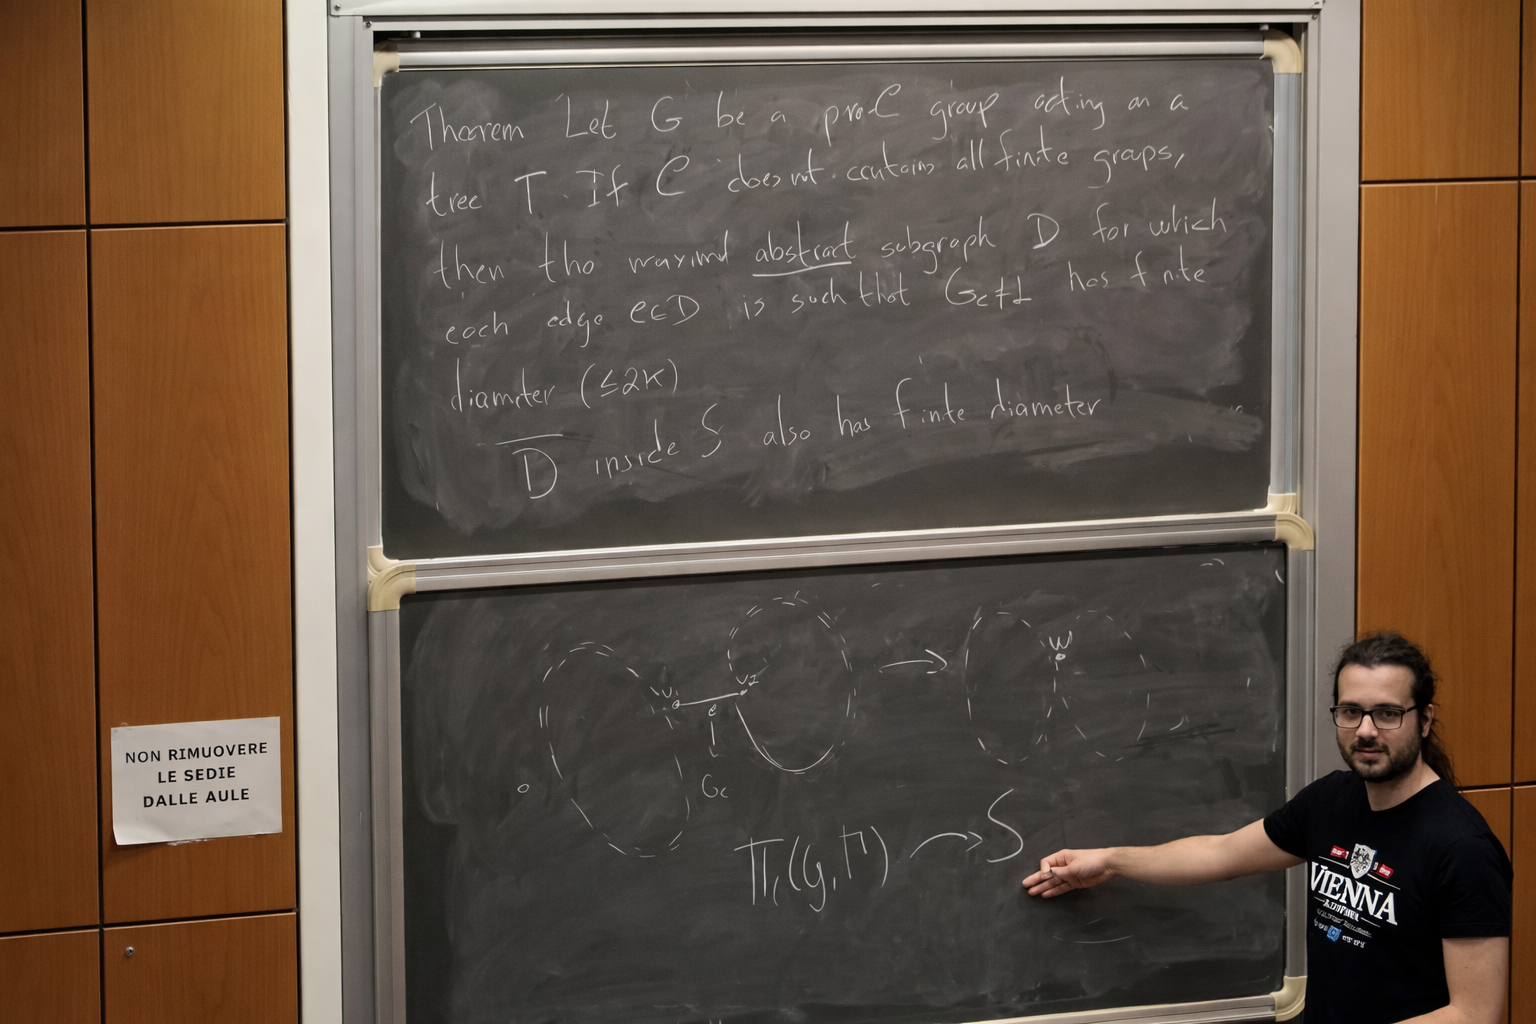 Theorem Let G be a pro-C group acting on a
tree T. If C does not contains all finite groups,
then the maximal abstract subgraph D for which
each edge e∈D is such that Ge≠1 has finite
diameter (≤2K)
D̅ inside S also has finite diameter
v₁ e v₂
→
w
Ge
π₁(G,Γ) → S
NON RIMUOVERE
LE SEDIE
DALLE AULE
VIENNA